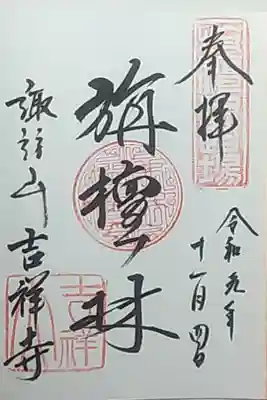 奉拝
令和元年
十一月四日
旃檀林
諏訪山吉祥寺